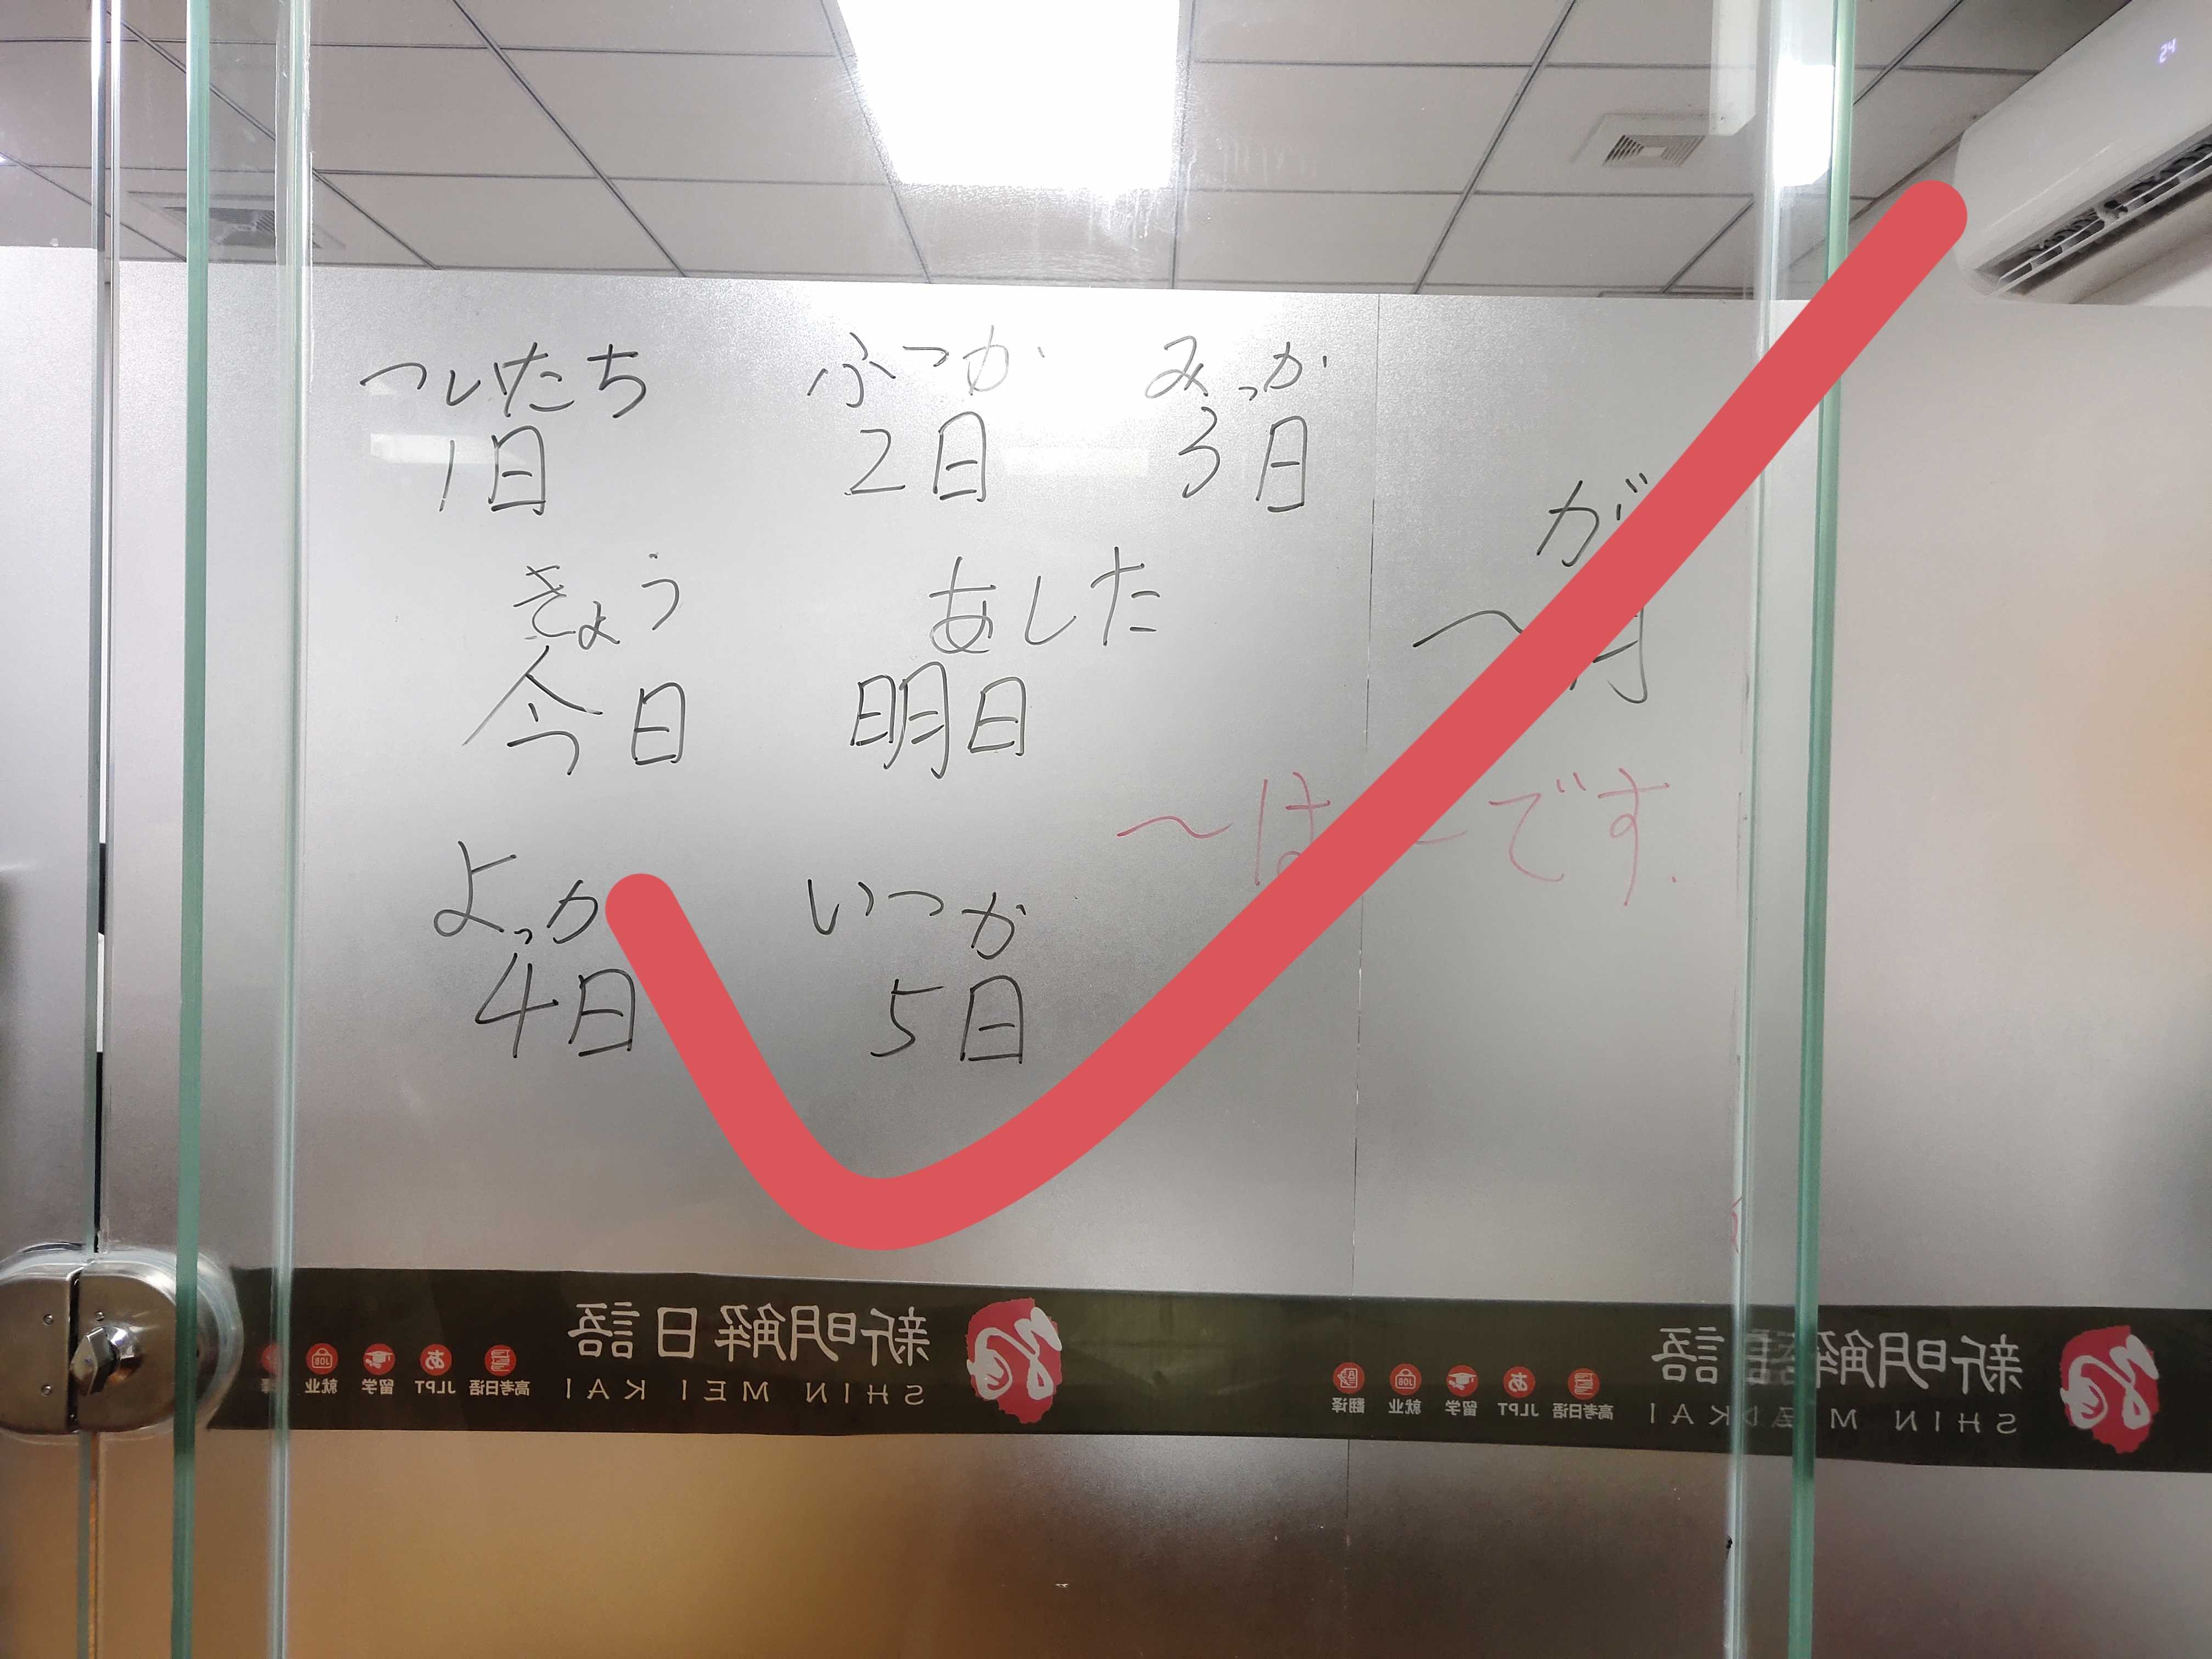 ついたち ふつか みっか
1日 2日 3日
が
きょう あした
今日 明日
〜月
〜は〜です.
よっか いつか
4日 5日
新明解日語
SHIN MEI KAI
高考日语 JLPT 留学 就业
新明解日語
SHIN MEI KAI
高考日语 JLPT 留学 就业 翻译
24